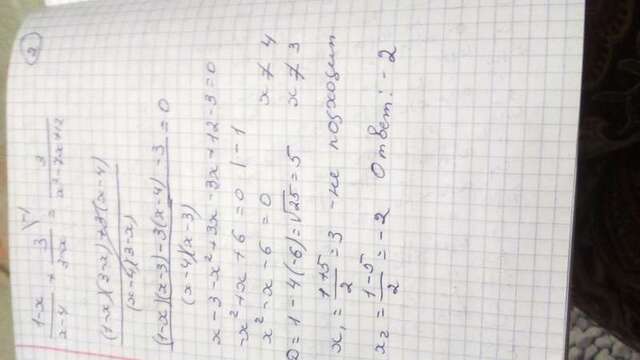 2
(1-x)/(x-4) + 3/(3-x) \-1 = 3/(x²-7x+12)
((1-x)(3-x)+3(x-4))/((x-4)(3-x))
((1-x)(x-3)-3(x-4)-3)/((x-4)(x-3)) = 0
x-3-x²+3x-3x+12-3=0
-x²+x+6=0 |-1
x²-x-6=0 x≠4
D=1-4(-6)=√25=5 x≠3
x₁=(1+5)/2=3 -не подходит
x₂=(1-5)/2=-2 Ответ: -2